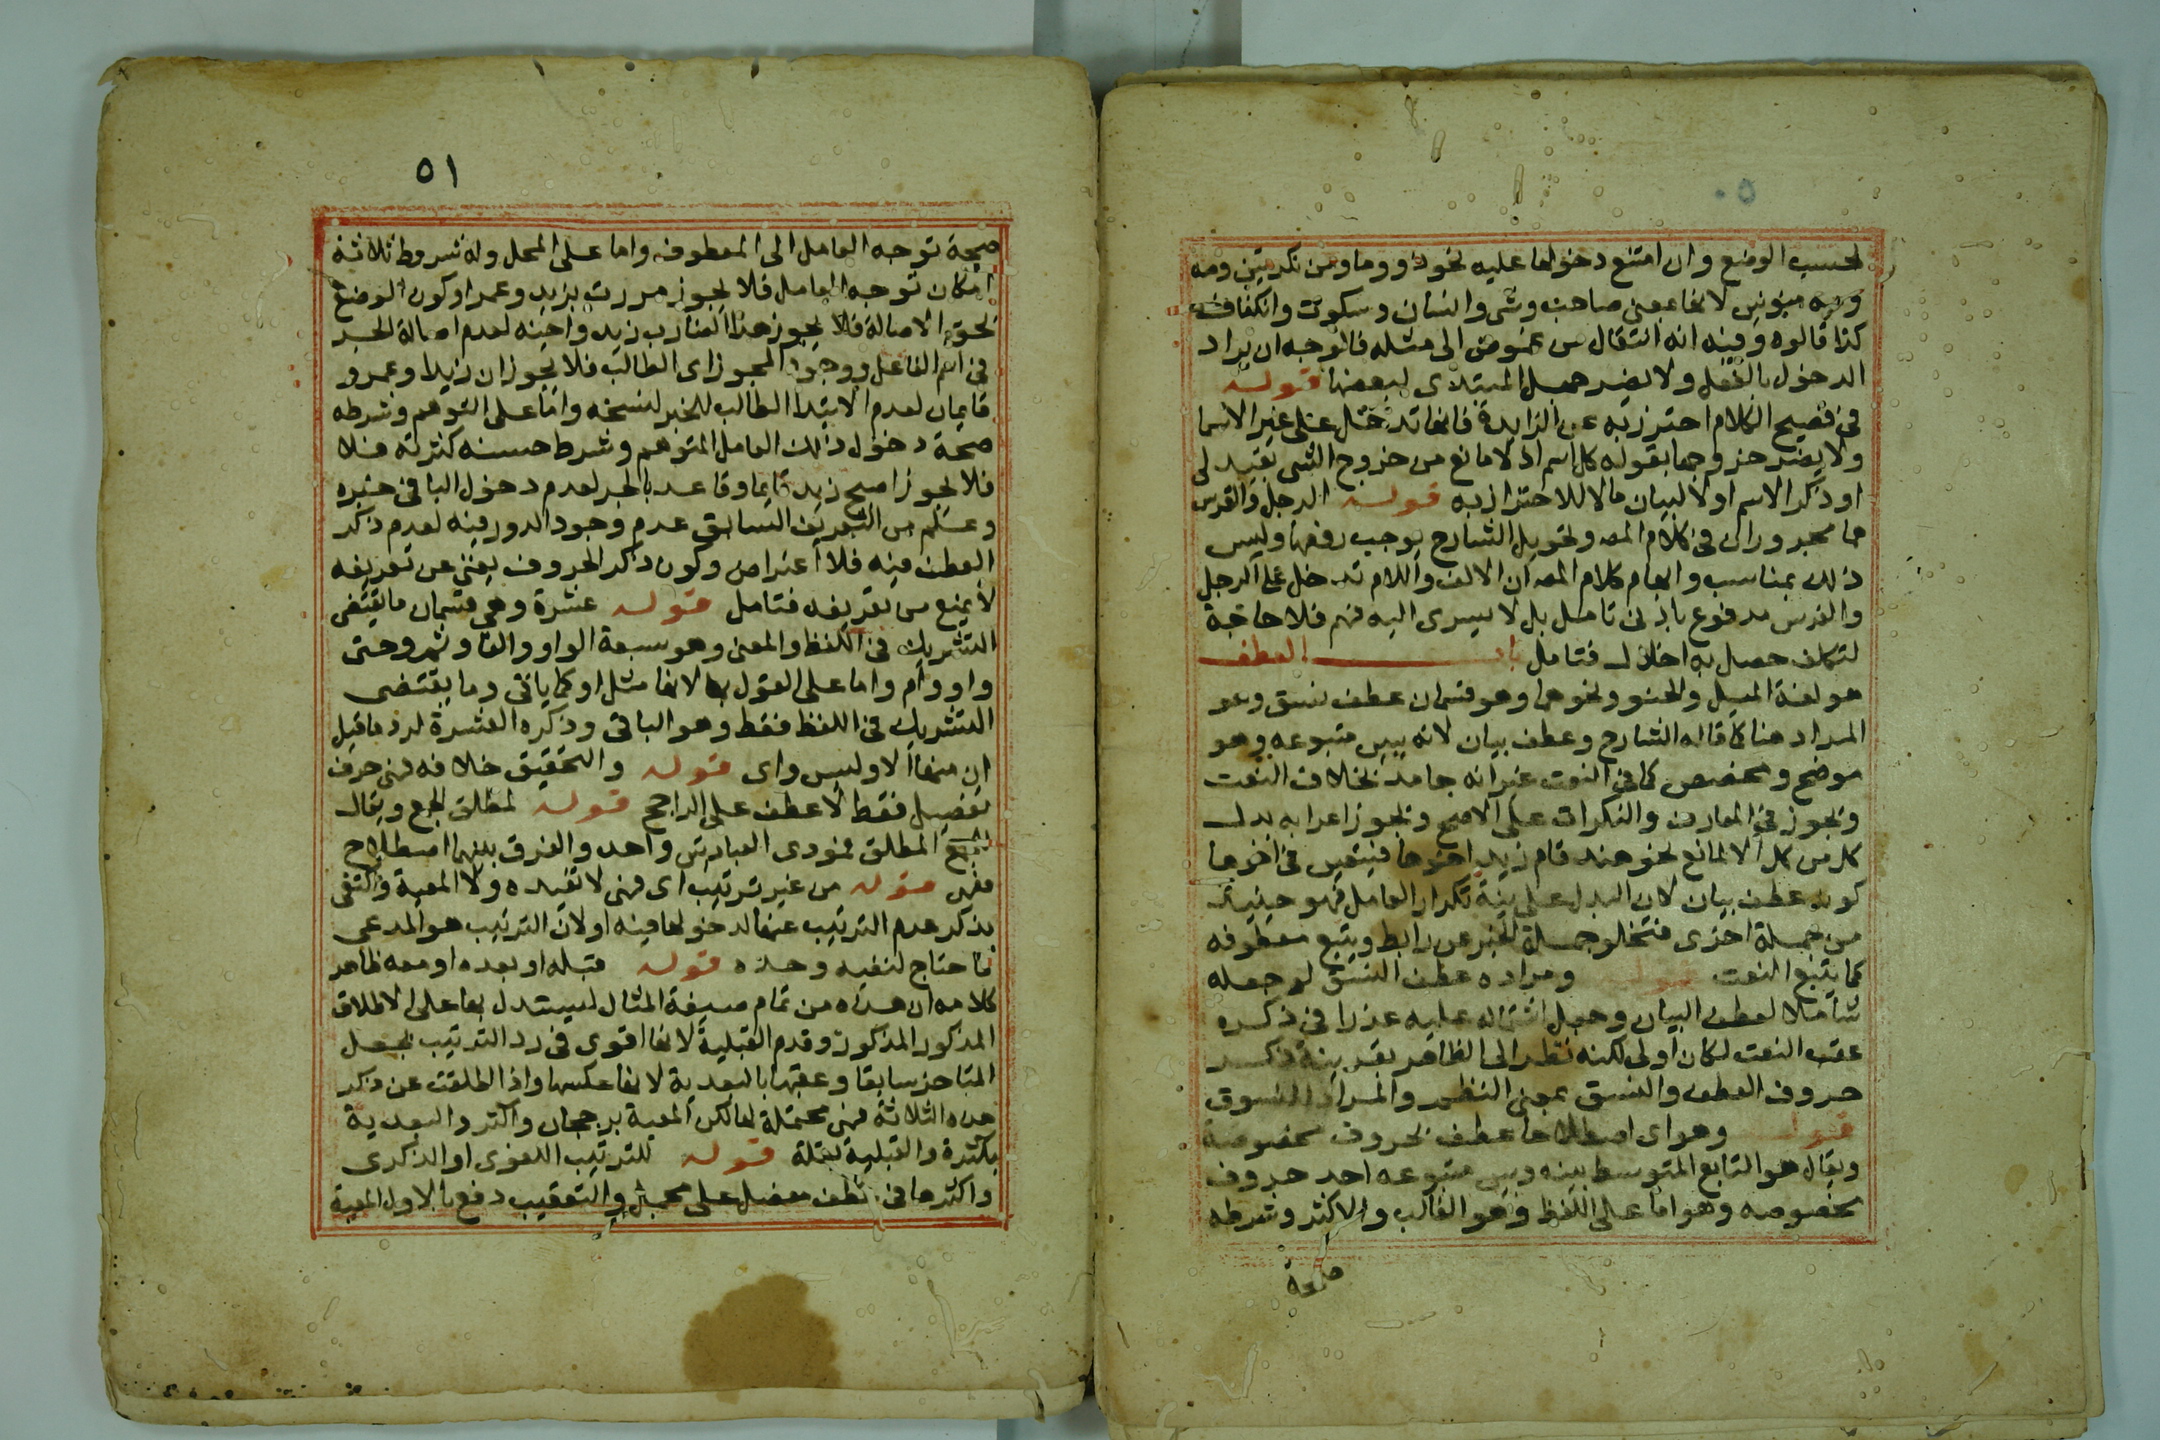 ٥٠
لحسب الوضع وان امتنع دخولها عليه نحو ذو وما ومن نكرتين ومه
وصه منونين لانها بمعنى صاحب وشى وانسان وسكوت وانكفاف
كذا قالوه وفيه انه انتقال من غموض الى مثله فالوجه ان يراد
الدخول بالفعل ولا يضر جهل المبتدى ببعضها قوله
فى فصيح الكلام احترز به عن الزايدة فانها تدخل على غير الاسما
ولا يضر خروجها بقوله كل اسم اذ لا مانع من خروج الشى بقيد لى
او ذكر الاسم اولا لبيان مالا للاحتراز به قوله الرجل والفرس
هما مجروران فى كلام المص وتحويل الشارح يوجب رفعها وليس
ذلك بمناسب وايهام كلام المص ان الالف واللام تدخل على الرجل
والفرس مدفوع بادنى تامل بل لا يسرى اليه فهم فلا حاجة
لتكلف حصل به اخلال فتامل باب العطف
هو لغة الميل والحنو ونحوهما وهو قسمان عطف نسق وهو
المراد هنا كما قاله الشارح وعطف بيان لانه يبين متبوعه وهو
موضح ومخصص كما فى النعت غير انه جامد بخلاف النعت
ونجوز فى المعارف والنكرات على الاصح ونجوز اعرابه بدل
كل من كل الا لمانع نحو هند قام زيد اخوها فيتعين فى اخوها
كونه عطف بيان لان البدل على نية تكرار العامل فهو حينيذ
من جملة اخرى فتخلو جملة الخبر عن رابط ويتبع معطوفه
كما يتبع النعت قوله ومراده عطف النسق لو جعله
شاملا لعطف البيان وجعل اشتماله عليه عذرا فى ذكره
عقب النعت لكان اولى لكنه نظر الى الظاهر بقرينة ذكر
حروف العطف والنسق بمعنى النظم والمراد المنسوق
قوله وهو اى اصطلاحا عطف بحروف مخصوصة
ويقال هو التابع المتوسط بينه وبين متبوعه احد حروف
مخصوصه وهو اما على اللفظ وهو الغالب والاكثر وشرطه
صحة
٥١
صحة توجه العامل الى المعطوف واما على المحل وله شروط ثلاثة
امكان توجه العامل فلا يجوز مررت بزيد وعمرا وكون الوضع
بحق الاصالة فلا يجوز هذا الضارب زيد واخيه لعدم اصالة الجر
فى اسم الفاعل ووجود المجوز اى الطالب فلا يجوز ان زيدا وعمرو
قايمان لعدم الابتدا الطالب للخبر لنسخه واما على التوهم وشرطه
صحة دخول ذلك العامل المتوهم وشرط حسنه كثرته فلا
فلا يجوز اصبح زيد قايما وقاعد بالجر لعدم دخول البا فى خبره
وعلم من التعريف السابق عدم وجود الدور فيه لعدم ذكر
العطف فيه فلا اعتراض وكون ذكر الحروف يغنى عن تعريفه
لا يمنع من تعريفه فتامل قوله عشرة وهى قسمان ما يقتضى
التشريك فى اللفظ والمعنى وهو سبعة الواو والفا وثم وحتى
واو وام واما على القول بها لانها مثل او كما ياتى وما يقتضى
التشريك فى اللفظ فقط وهو الباقى وذكره العشرة لرد ما قيل
ان منها الا وليس واى قوله والتحقيق خلافه فهى حرف
تفصيل فقط لا عطف على الراجح قوله لمطلق الجمع ويقال
الجمع المطلق فمودى العبارتين واحد والفرق بينهما اصطلاح
فقهى قوله من غير ترتيب اى فهى لا تفيده ولا المعية واكتفى
بذكر عدم الترتيب عنها لدخولها فيه او لان الترتيب هو المدعى
فاحتاج لنفيه وحده قوله قبله او بعده او معه ظاهر
كلامه ان هذه من تمام صيغة المثال ليستدل بها على الاطلاق
المذكور المذكور وقدم القبلية لانها اقوى فى رد الترتيب بجعل
المتاخر سابقا وعقبها بالبعدية لانها عكسها واذا اطلقت عن ذكر
هذه الثلاثة فهى محتملة لها لكن المعية برجحان واكثر والبعدية
بكثرة والقبلية بقلة قوله للترتيب اللغوى او الذكرى
واكثرها فى عطف مفصل على مجمل والتعقيب دفع بالاول المعية